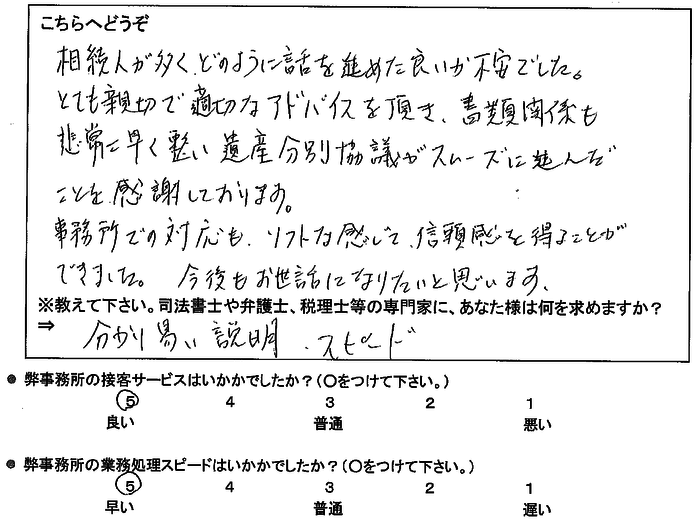 こちらへどうぞ
相続人が多く、どのように話を進めた良いか不安でした。
とても親切で適切なアドバイスを頂き、書類関係も
非常に早く整い遺産分別協議がスムーズに進んだ
ことを感謝しております。
事務所での対応も、ソフトな感じで、信頼感を得ることが
できました。 今後もお世話になりたいと思います。
※教えて下さい。司法書士や弁護士、税理士等の専門家に、あなた様は何を求めますか？
⇒ 分かり易い説明 ・スピード
● 弊事務所の接客サービスはいかかでしたか？（○をつけて下さい。）
5 4 3 2 1
良い 普通 悪い
● 弊事務所の業務処理スピードはいかかでしたか？（○をつけて下さい。）
5 4 3 2 1
早い 普通 遅い